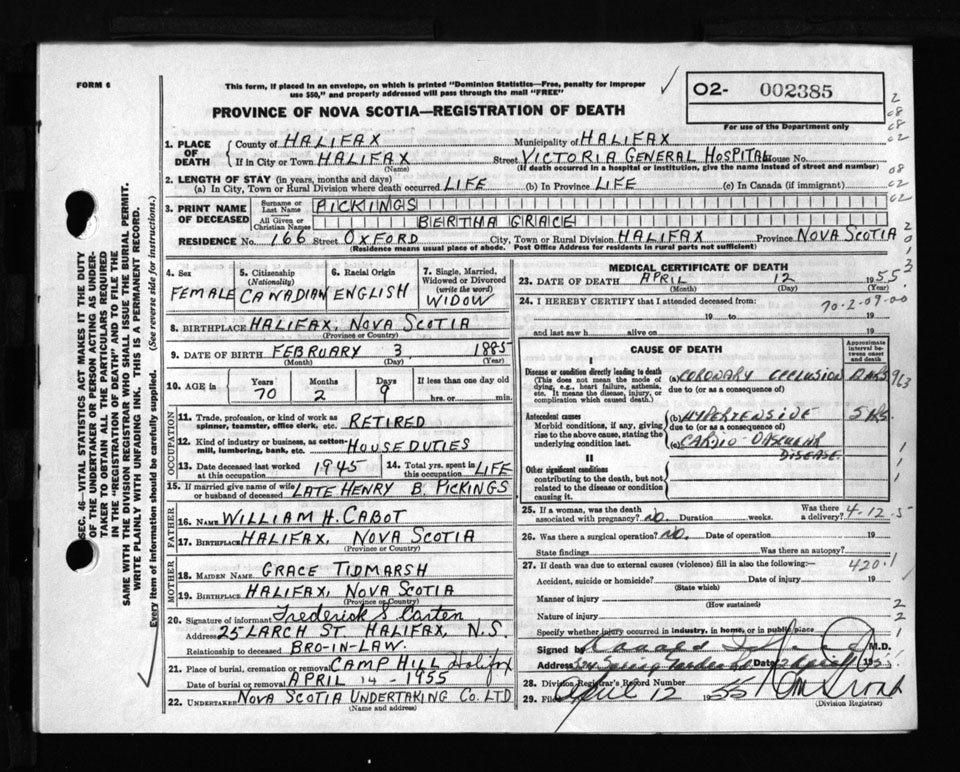 FORM 6
This form, if placed in an envelope, on which is printed "Dominion Statistics—Free, penalty for improper
use $50," and properly addressed will pass through the mail "FREE"
O2- 002385
For use of the Department only
PROVINCE OF NOVA SCOTIA—REGISTRATION OF DEATH
SEC. 46—VITAL STATISTICS ACT MAKES IT THE DUTY
OF THE UNDERTAKER OR PERSON ACTING AS UNDER-
TAKER TO OBTAIN ALL THE PARTICULARS REQUIRED
IN THE "REGISTRATION OF DEATH" AND TO FILE THE
SAME WITH THE DIVISION REGISTRAR WHO SHALL ISSUE THE BURIAL PERMIT.
WRITE PLAINLY WITH UNFADING INK. THIS IS A PERMANENT RECORD.
Every item of information should be carefully supplied. (See reverse side for instructions.)
1. PLACE OF DEATH County of HALIFAX Municipality of HALIFAX
If in City or Town HALIFAX Street VICTORIA GENERAL HOSPITAL House No.
(Name) (If death occurred in a hospital or institution, give the name instead of street and number)
2. LENGTH OF STAY (in years, months and days)
(a) In City, Town or Rural Division where death occurred LIFE (b) In Province LIFE (c) In Canada (if immigrant)
3. PRINT NAME OF DECEASED Surname or Last Name PICKINGS
All Given or Christian Names BERTHA GRACE
RESIDENCE No. 166 Street OXFORD City, Town or Rural Division HALIFAX Province NOVA SCOTIA
(Residence means usual place of abode. Post Office Address for residents in rural parts not sufficient)
4. Sex FEMALE
5. Citizenship (Nationality) CANADIAN
6. Racial Origin ENGLISH
7. Single, Married, Widowed or Divorced (write the word) WIDOW
8. BIRTHPLACE HALIFAX, NOVA SCOTIA
(Province or Country)
9. DATE OF BIRTH FEBRUARY 3 1885
(Month) (Day) (Year)
10. AGE in Years 70 Months 2 Days 9 If less than one day old
hrs. or min.
OCCUPATION
11. Trade, profession, or kind of work as
spinner, teamster, office clerk, etc. RETIRED
12. Kind of industry or business, as cotton-
mill, lumbering, bank, etc. HOUSE DUTIES
13. Date deceased last worked at this occupation 1945 14. Total yrs. spent in this occupation LIFE
15. If married give name of wife
or husband of deceased LATE HENRY B. PICKINGS
FATHER
16. NAME WILLIAM H. CABOT
17. BIRTHPLACE HALIFAX, NOVA SCOTIA
(Province or Country)
MOTHER
18. MAIDEN NAME GRACE TIDMARSH
19. BIRTHPLACE HALIFAX, NOVA SCOTIA
(Province or Country)
20. Signature of informant Frederick S Carten
Address 25 LARCH ST. HALIFAX, N.S.
Relationship to deceased BRO-IN-LAW.
21. Place of burial, cremation or removal CAMP HILL Halifax
Date of burial or removal APRIL 14 - 1955
22. UNDERTAKER NOVA SCOTIA UNDERTAKING CO. LTD
(Name and address)
MEDICAL CERTIFICATE OF DEATH
23. DATE OF DEATH APRIL 12 1955
(Month) (Day) (Year)
24. I HEREBY CERTIFY that I attended deceased from:
70-2-09-00
19 to 19
and last saw h alive on 19
CAUSE OF DEATH
Approximate interval between onset and death
I
Disease or condition directly leading to death (a) CORONARY OCCLUSION
(This does not mean the mode of dying, e.g., heart failure, asthenia, etc. It means the disease, injury, or complication which caused death.) due to (or as a consequence of)
Antecedent causes (b) HYPERTENSIVE 5 YRS.
Morbid conditions, if any, giving rise to the above cause, stating the underlying condition last. due to (or as a consequence of)
(c) CARDIO VASCULAR
DISEASE.
II
Other significant conditions
contributing to the death, but not
related to the disease or condition
causing it.
25. If a woman, was the death
associated with pregnancy? NO. Duration weeks. Was there a delivery? 4-12-5
26. Was there a surgical operation? NO. Date of operation 19
State findings Was there an autopsy?
27. If death was due to external causes (violence) fill in also the following:— 420.1
Accident, suicide or homicide? Date of injury 19
(State which)
Manner of injury
(How sustained)
Nature of injury
Specify whether injury occurred in industry, in home, or in public place
Signed by M.D.
Address Spring Garden Rd Date
28. Division Registrar's Record Number
29. Filed April 12 1955
(Division Registrar)